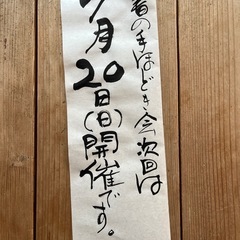 の手ほどき会次回は
月20日(日)開催です。